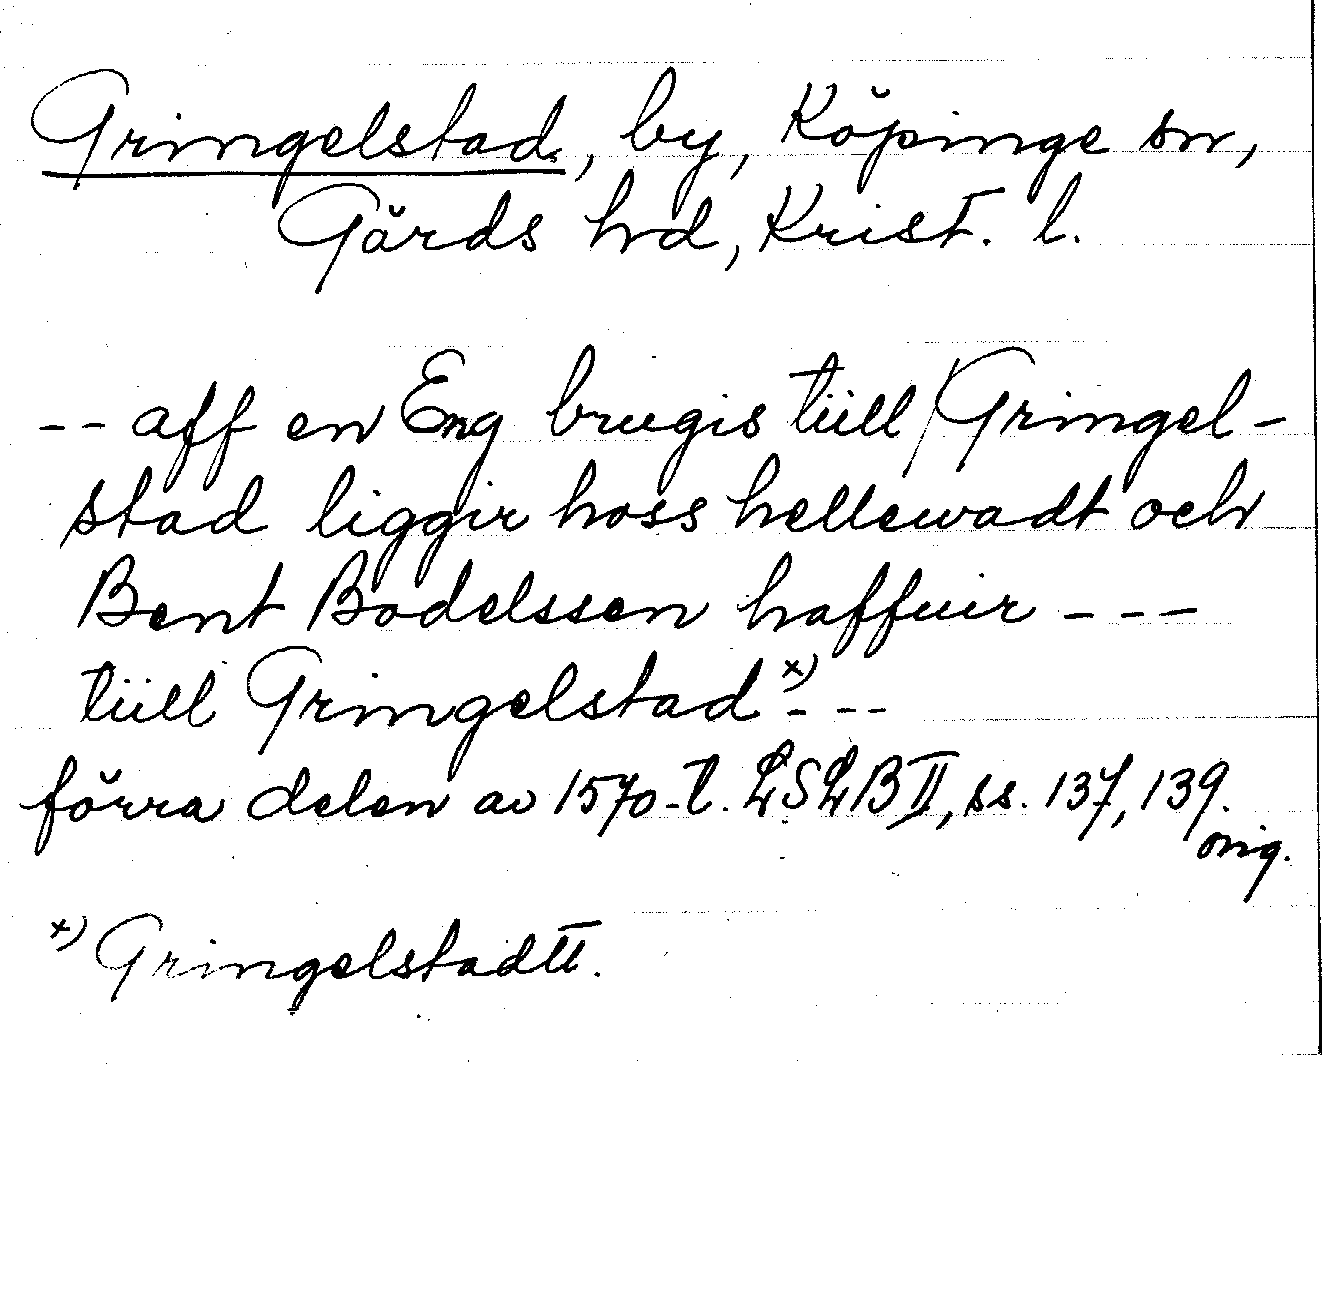 Gringelstad, by, Köpinge sn,
Gärds hrd, Krist. l.
-- aff en Eng brugis tüll / Gringel-
stad liggir hoss hellewadt och
Bent Bodelssen haffuir ---
tüll Gringelstad x) ---
förra delen av 1570-t. LSLB II, ss. 137, 139.
orig.
x) Gringelstadtt.